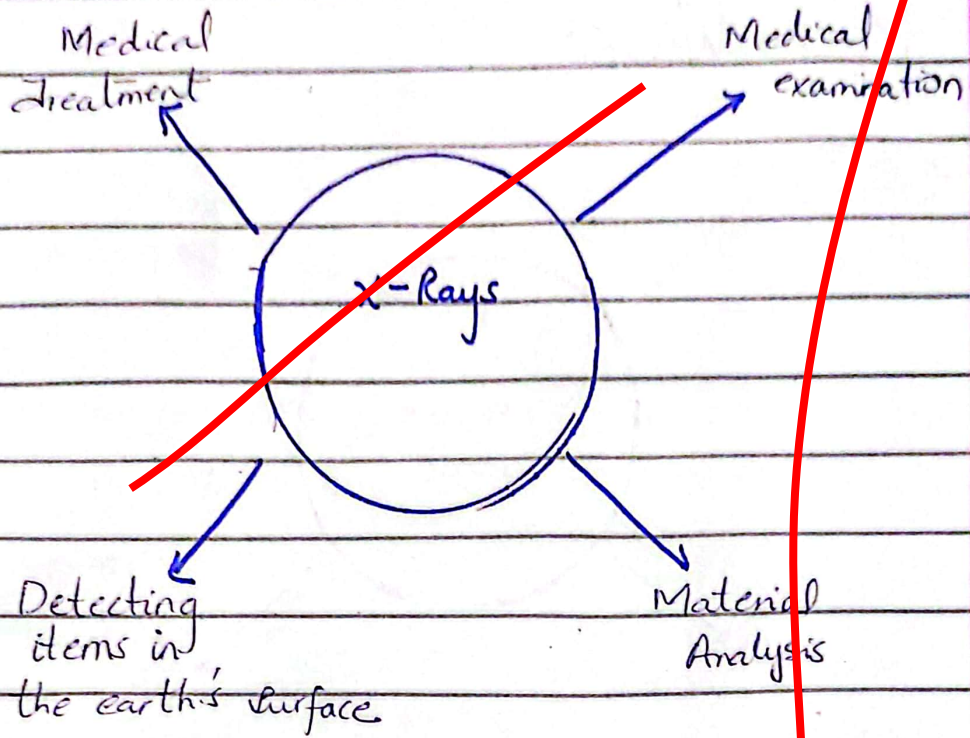 Medical
treatment
Medical
examination
X-Rays
Detecting
items in
the earth's surface
Material
Analysis